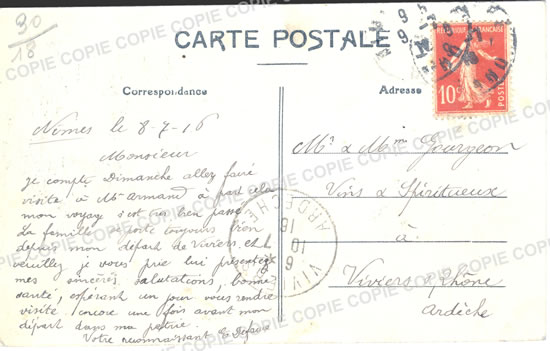 30
18
CARTE POSTALE
Correspondance
Adresse
RÉPUBLIQUE FRANÇAISE
10c
POSTES
Nimes le 8-7-16
Monsieur
Je compte Dimanche allez faire
visite à Mr Armand à part cela
mon voyage s'est bien passé
La famille se porte toujours bien
depuis mon depart de Viviers et
veuillez je vous prie lui présenter
mes sincères salutations, bonne
santé, espérant un jour vous rendre
visite encore une fois avant mon
départ dans ma patrie.
Votre reconnaissant
Mr & Mme Gourgeon
Vins & Spiritueux
à
Viviers s/Rhône
Ardèche
VIVIERS
ARDECHE
10
16
COPIE COPIE COPIE COPIE COPIE COPIE COPIE